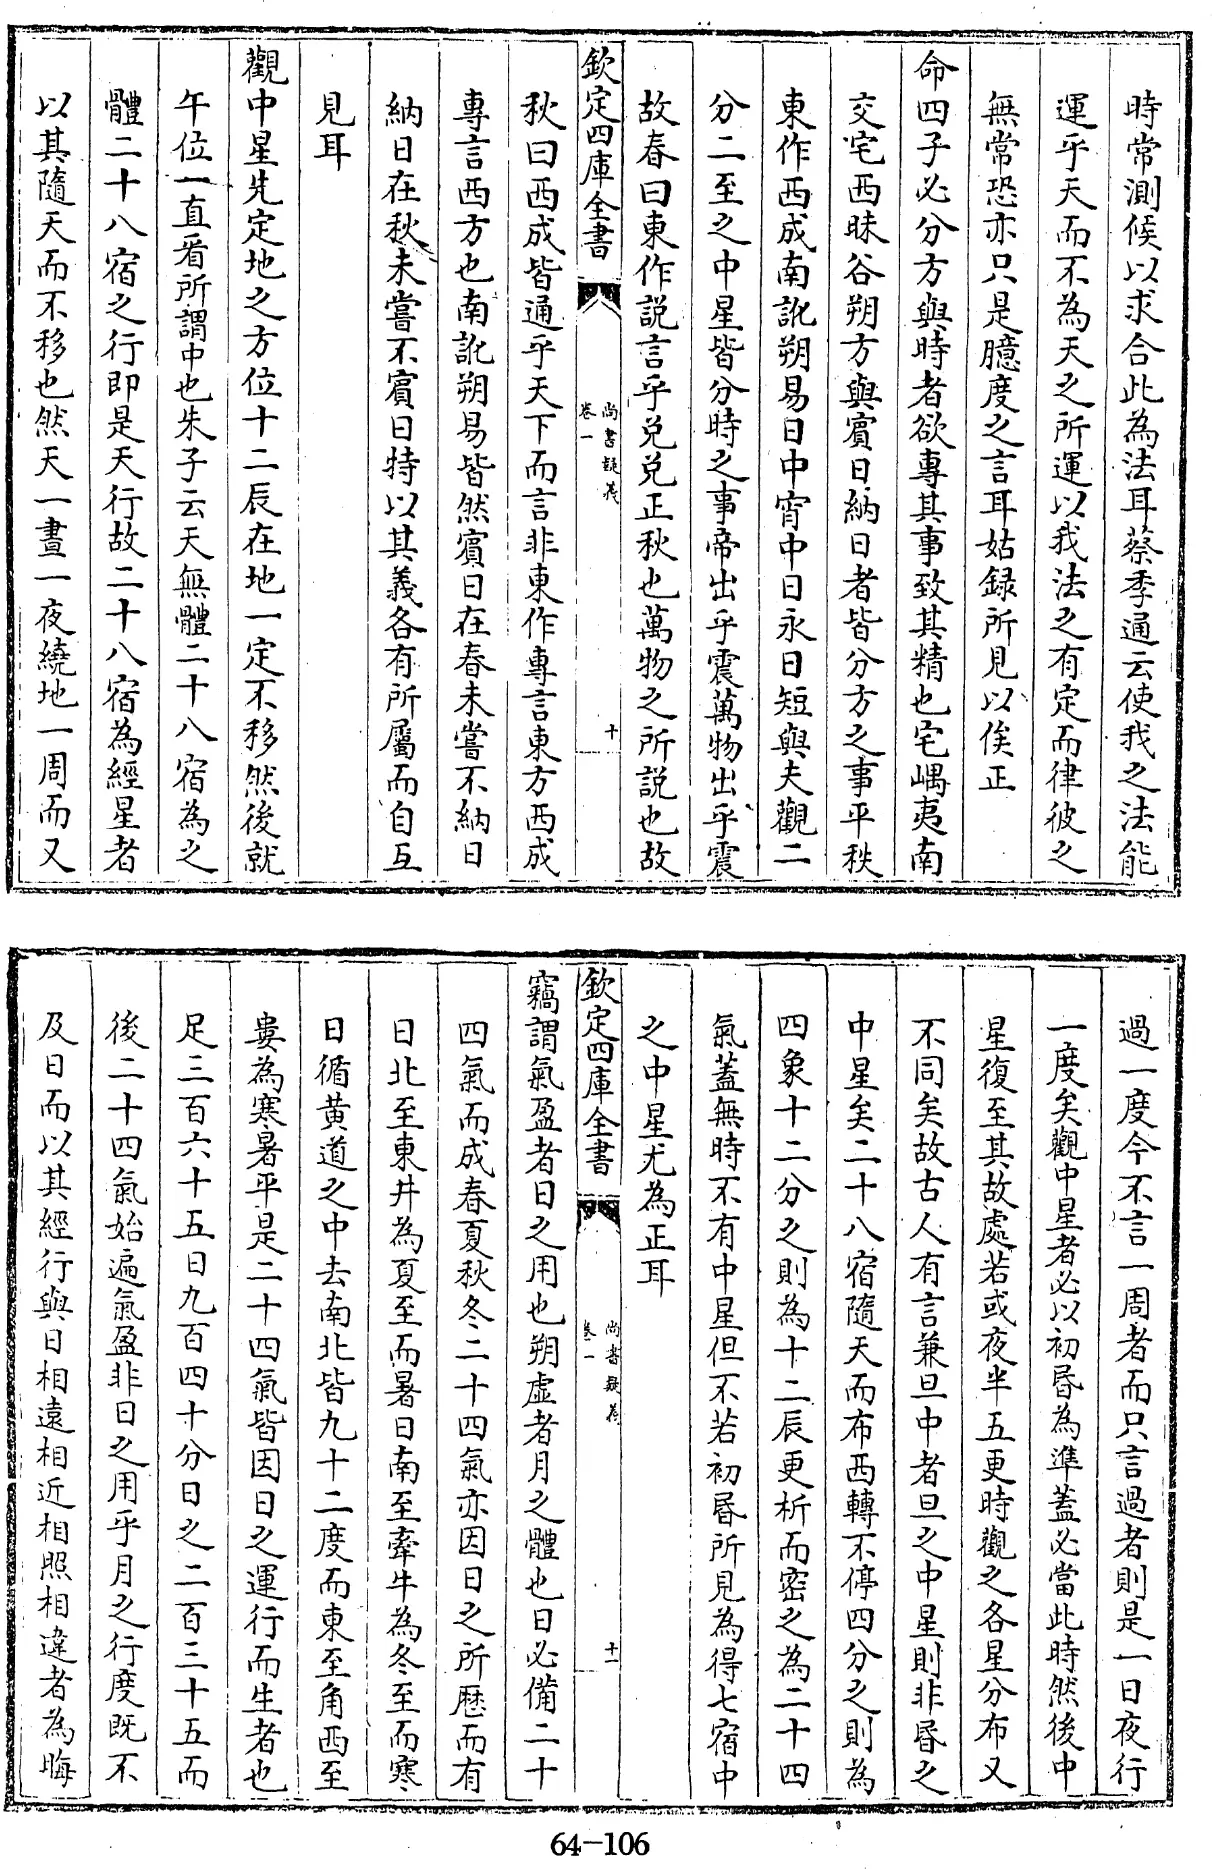 時常測候以求合此為法耳蔡季通云使我之法能
運乎天而不為天之所運以我法之有定而律彼之
無常恐亦只是臆度之言耳姑録所見以俟正
命四子必分方與時者欲專其事致其精也宅嵎夷南
交宅西昧谷朔方與賓日納日者皆分方之事平秩
東作西成南訛朔易日中宵中日永日短與夫觀二
分二至之中星皆分時之事帝出乎震萬物出乎震
故春曰東作説言乎兌兌正秋也萬物之所説也故
欽定四庫全書
尚書疑義
卷一
十
秋曰西成皆通乎天下而言非東作專言東方西成
專言西方也南訛朔易皆然賓日在春未嘗不納日
納日在秋未嘗不賓日特以其義各有所屬而自互
見耳
觀中星先定地之方位十二辰在地一定不移然後就
午位一直看所謂中也朱子云天無體二十八宿為之
體二十八宿之行即是天行故二十八宿為經星者
以其隨天而不移也然天一晝一夜繞地一周而又
過一度今不言一周者而只言過者則是一日夜行
一度矣觀中星者必以初昬為準蓋必當此時然後中
星復至其故處若或夜半五更時觀之各星分布又
不同矣故古人有言兼旦中者旦之中星則非昬之
中星矣二十八宿隨天而布西轉不停四分之則為
四象十二分之則為十二辰更析而密之為二十四
氣蓋無時不有中星但不若初昬所見為得七宿中
之中星尤為正耳
欽定四庫全書
尚書疑義
卷一
十一
竊謂氣盈者日之用也朔虛者月之體也日必備二十
四氣而成春夏秋冬二十四氣亦因日之所歴而有
日北至東井為夏至而暑日南至牽牛為冬至而寒
日循黄道之中去南北皆九十二度而東至角西至
婁為寒暑平是二十四氣皆因日之運行而生者也
足三百六十五日九百四十分日之二百三十五而
後二十四氣始遍氣盈非日之用乎月之行度既不
及日而以其經行與日相遠相近相照相違者為晦
64-106